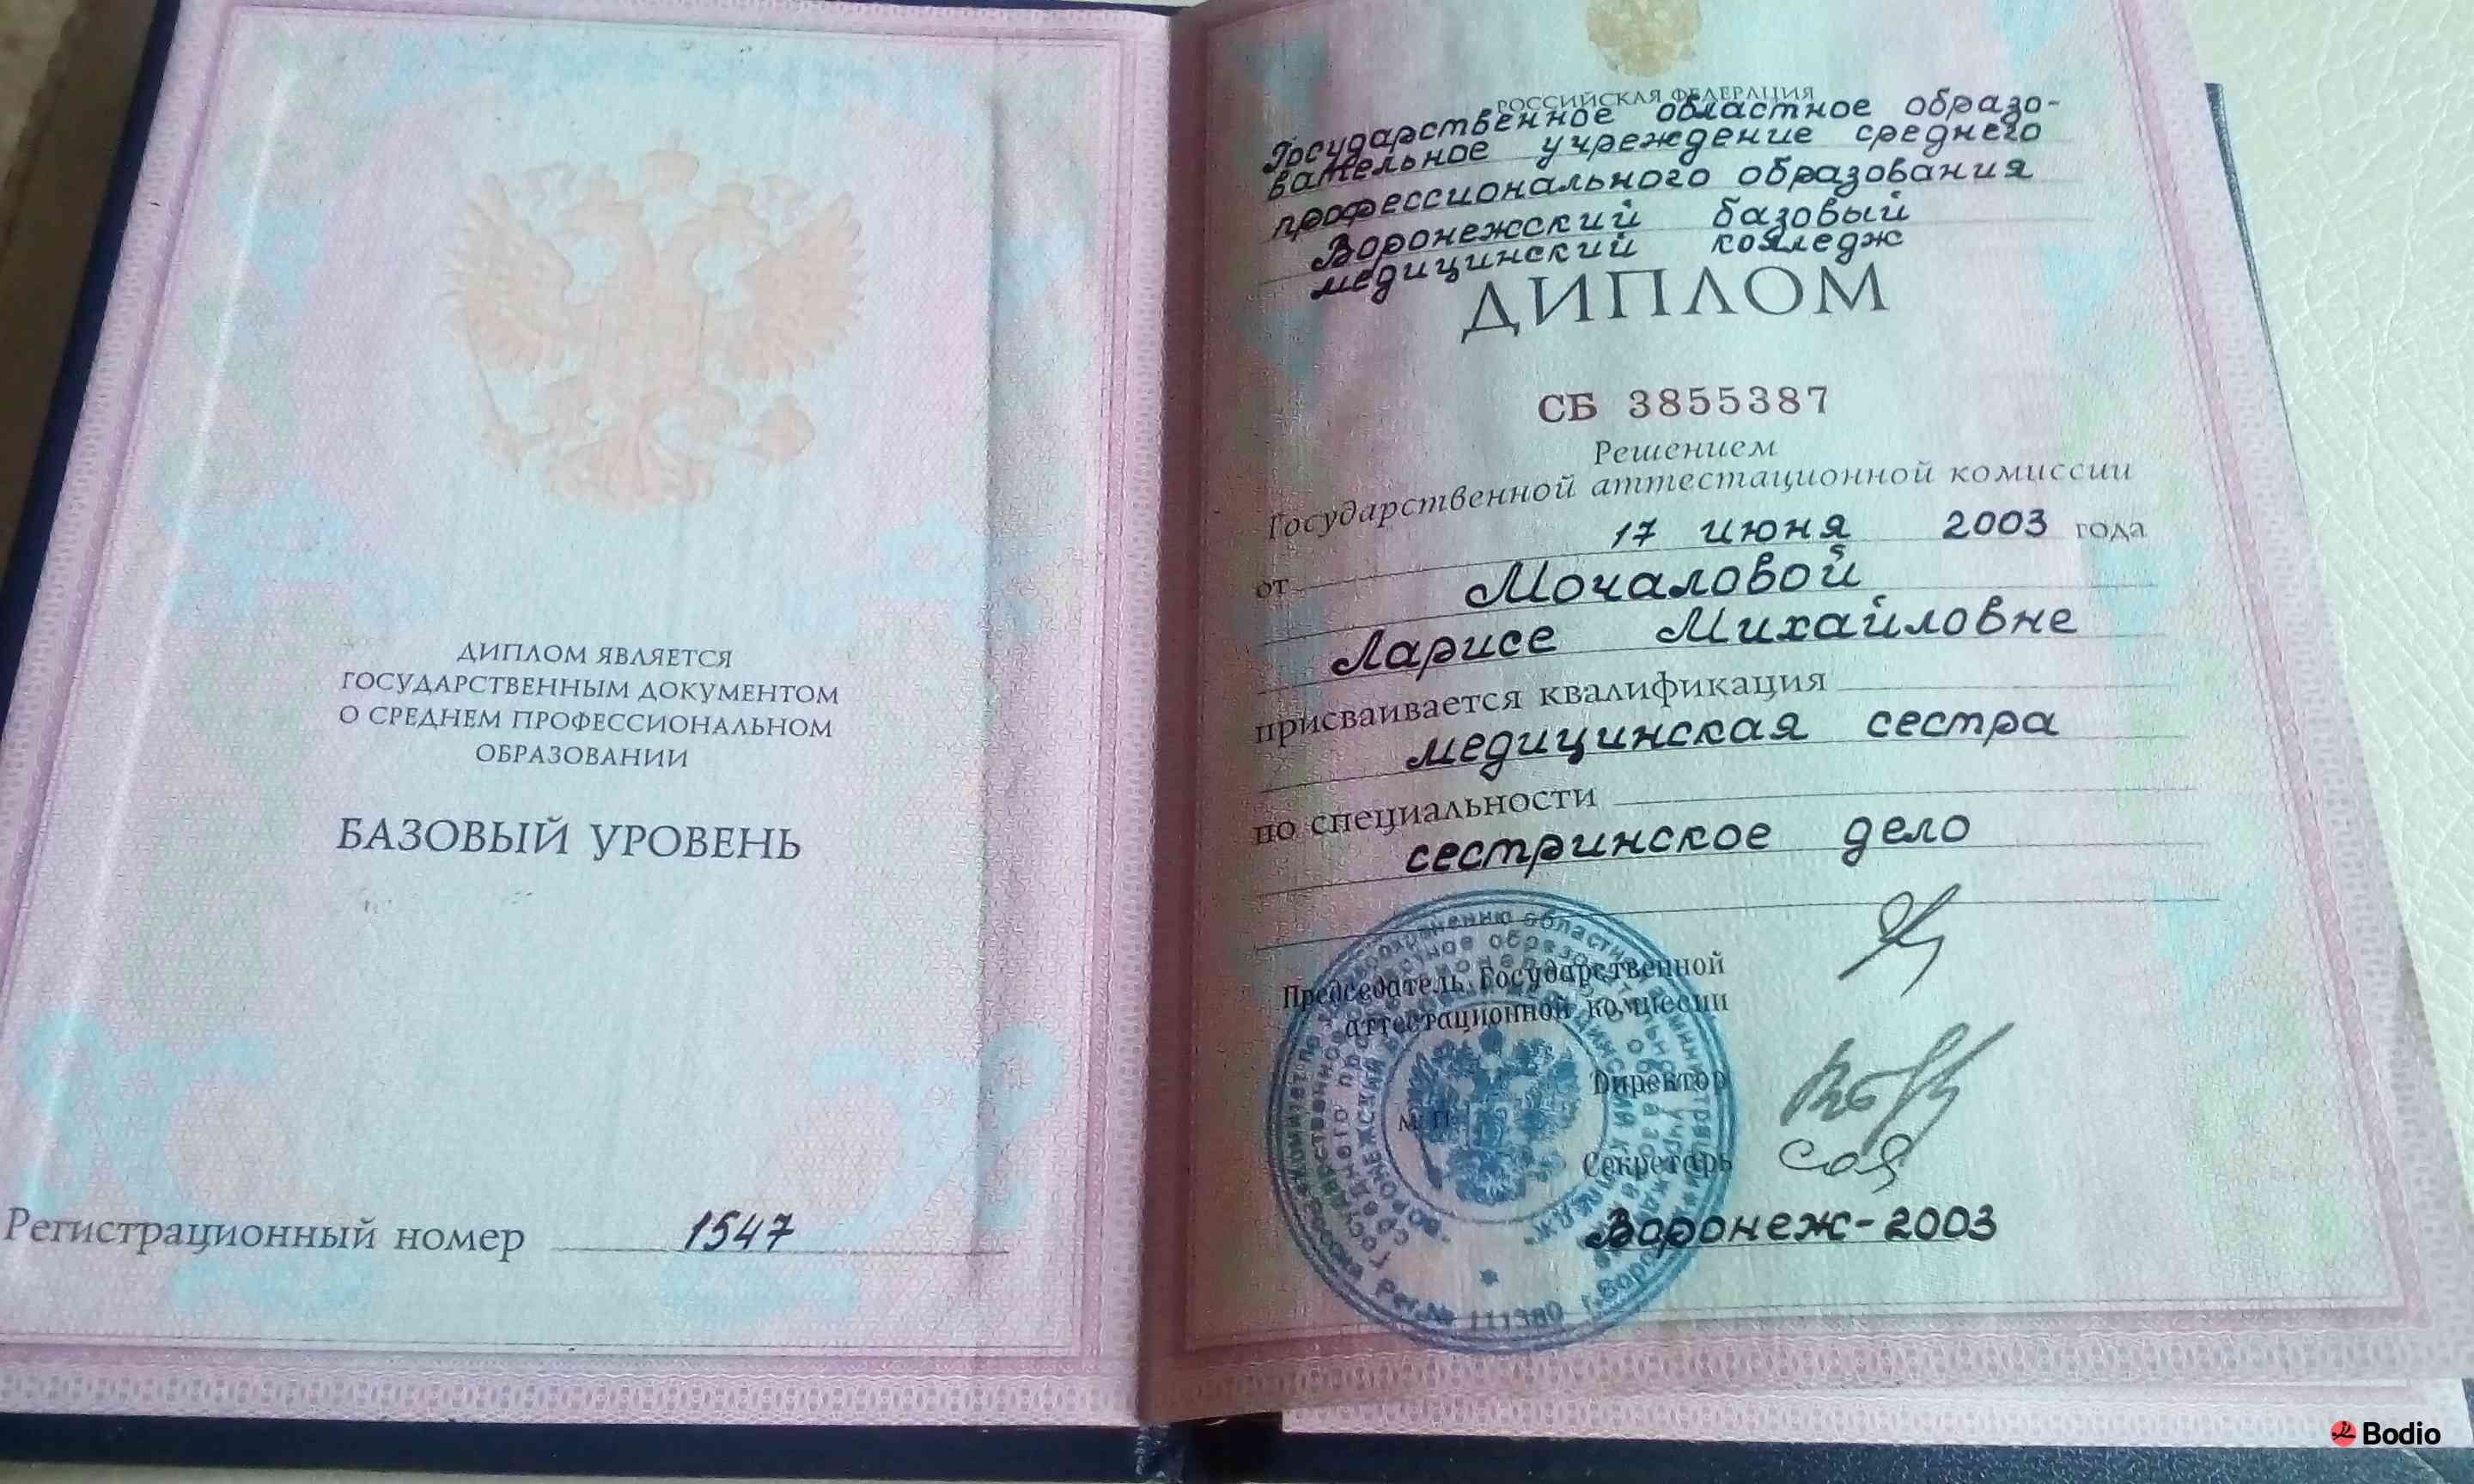 ДИПЛОМ ЯВЛЯЕТСЯ
ГОСУДАРСТВЕННЫМ ДОКУМЕНТОМ
О СРЕДНЕМ ПРОФЕССИОНАЛЬНОМ
ОБРАЗОВАНИИ
БАЗОВЫЙ УРОВЕНЬ
Регистрационный номер 1547
РОССИЙСКАЯ ФЕДЕРАЦИЯ
Государственное областное образо-
вательное учреждение среднего
профессионального образования
Воронежский базовый
медицинский колледж
ДИПЛОМ
СБ 3855387
Решением
Государственной аттестационной комиссии
от 17 июня 2003 года
Мочаловой
Ларисе Михайловне
присваивается квалификация
медицинская сестра
по специальности
сестринское дело
Председатель Государственной
аттестационной комиссии
Директор
М.П.
Секретарь
Воронеж-2003
Рег.№ 111380 г.Воронеж
Bodio